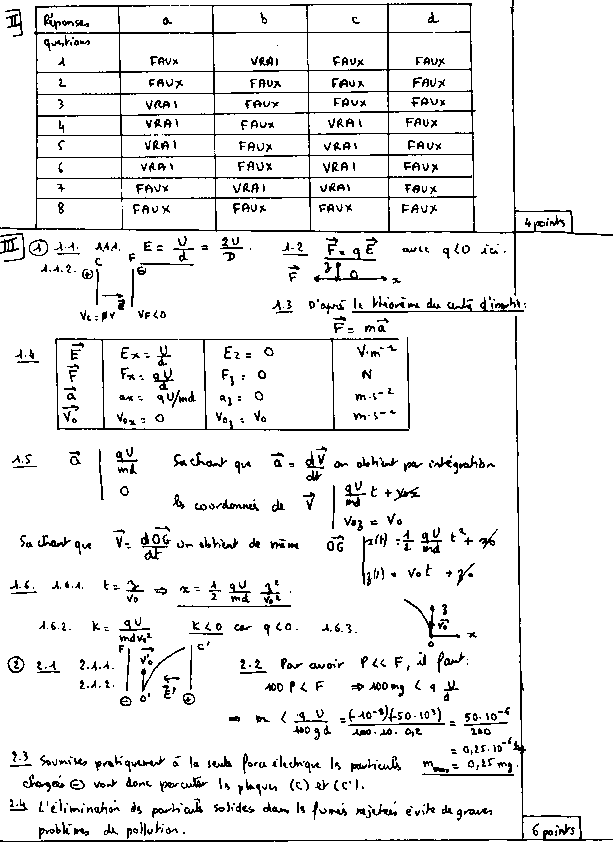 II
Réponses a b c d
questions
1 FAUX VRAI FAUX FAUX
2 FAUX FAUX FAUX FAUX
3 VRAI FAUX FAUX FAUX
4 VRAI FAUX VRAI FAUX
5 VRAI FAUX VRAI FAUX
6 VRAI FAUX VRAI FAUX
7 FAUX VRAI VRAI FAUX
8 FAUX FAUX FAUX FAUX
4 points
III ① 1.1. 1.1.1. E = U/d = 2U/D. 1.2 F⃗ = q E⃗ avec q<0 ici.
1.1.2. C F
⊕ ⊖ F⃗ z O x
Vc = 0V VF<0
1.3 D'après le théorème du centre d'inertie:
F⃗ = ma⃗
1.4 E⃗ Ex = U/d Ez = 0 V.m⁻¹
F⃗ Fx = qU/d Fz = 0 N
a⃗ ax = qU/md az = 0 m.s⁻²
V₀⃗ V₀x = 0 V₀z = V₀ m.s⁻¹
1.5 a⃗ | qU/md Sachant que a⃗ = dV⃗/dt on obtient par intégration
0
les coordonnées de V⃗ | qU/md t + v₀x
V₀z = V₀
Sachant que V⃗ = dOG⃗/dt on obtient de même OG⃗ | x(t) = 1/2 qU/md t² + x₀
z(t) = V₀t + z₀
1.6. 1.6.1. t = z/V₀ ⇒ x = 1/2 qU/md z²/V₀².
1.6.2. K = qU/mdV₀² K<0 car q<0. 1.6.3. z V₀⃗ O x
② 2.1 2.1.1. F V'₀⃗ C'
2.1.2. ⊖ O' E'⃗ ⊕
2.2 Pour avoir P<<F, il faut:
100 P < F ⇒ 100 mg < q U/d
⇒ m < q U/100 g d = (-10⁻⁸)(-50.10³)/100.10.0,2 = 50.10⁻⁶/200
= 0,25.10⁻⁶ kg
2.3 Soumises pratiquement à la seule force électrique les particules mmax = 0,25 mg.
chargées ⊖ vont donc percuter les plaques (C) et (C').
2.4 L'élimination des particules solides dans les fumées rejetées évite de graves
problèmes de pollution.
6 points